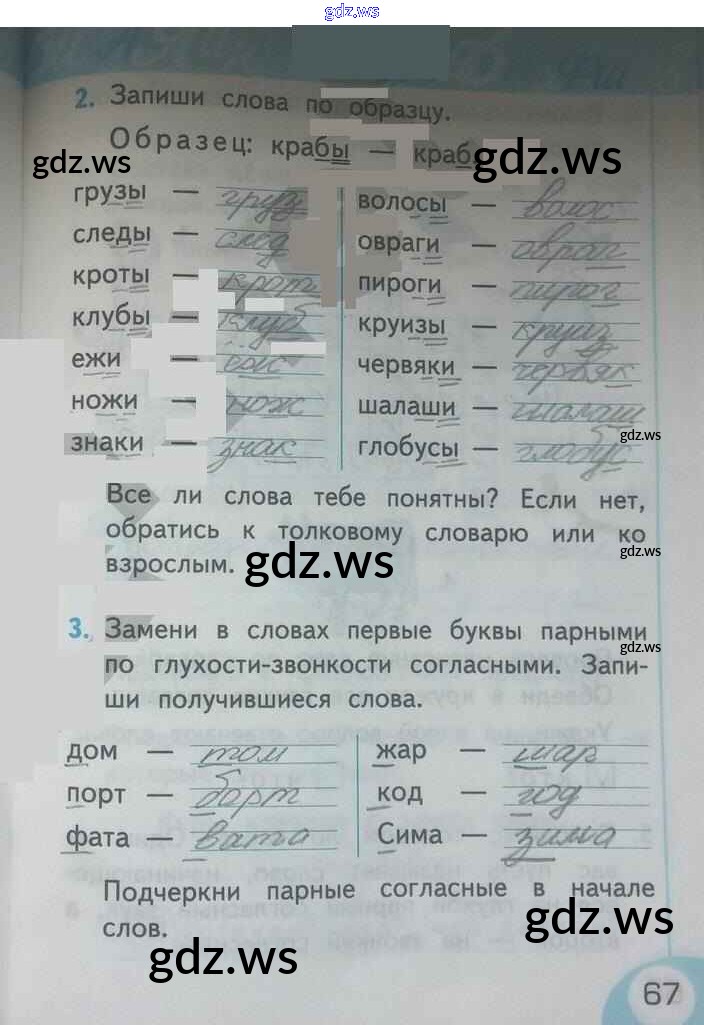 gdz.ws
2. Запиши слова по образцу.
Образец: крабы — краб
gdz.ws gdz.ws
грузы — груз волосы — волос
следы — след овраги — овраг
кроты — крот пироги — пирог
клубы — клуб круизы — круиз
ежи — ёж червяки — червяк
ножи — нож шалаши — шалаш
знаки — знак глобусы — глобус
gdz.ws
Все ли слова тебе понятны? Если нет,
обратись к толковому словарю или ко
gdz.ws
взрослым. gdz.ws
3. Замени в словах первые буквы парными
gdz.ws
по глухости-звонкости согласными. Запи-
ши получившиеся слова.
дом — том жар — шар
порт — борт код — год
фата — вата Сима — зима
Подчеркни парные согласные в начале
слов. gdz.ws
gdz.ws
67